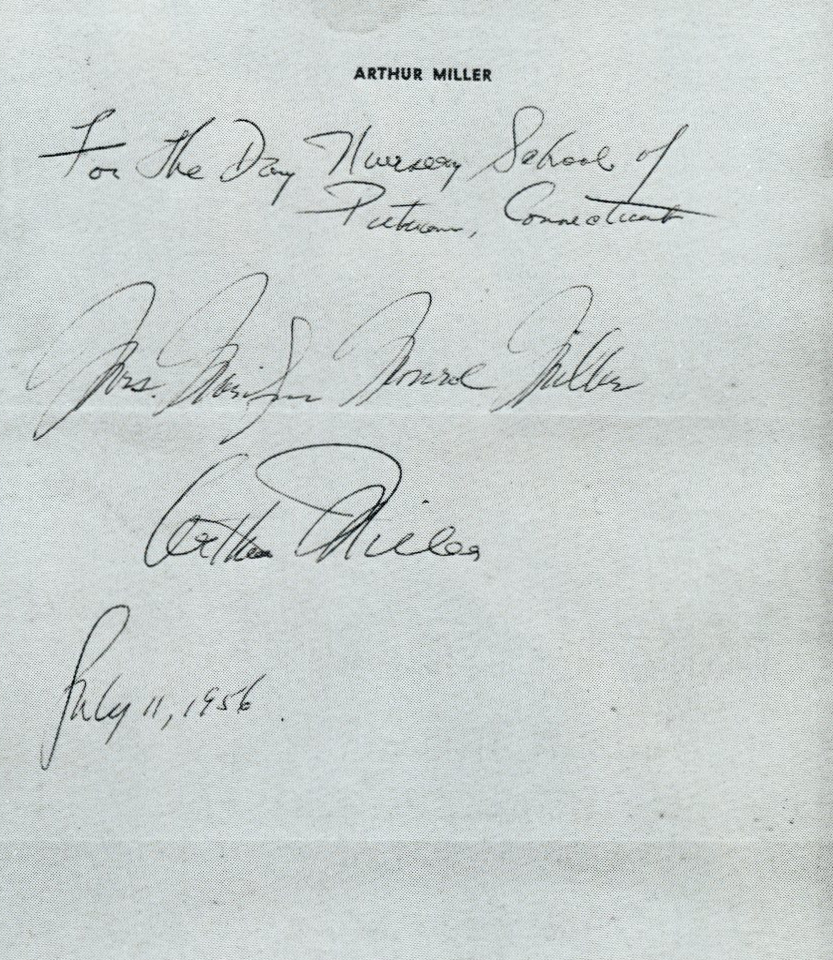 ARTHUR MILLER
For the Day Nursery School of
Putnam, Connecticut
Mrs. Marilyn Monroe Miller
Arthur Miller
July 11, 1956.